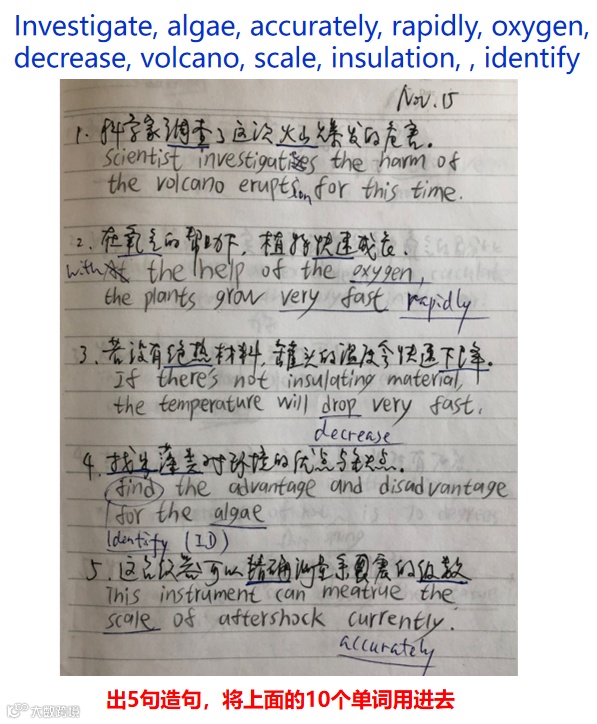 Investigate, algae, accurately, rapidly, oxygen,
decrease, volcano, scale, insulation, , identify
Nov. 15
1. 科学家调查了这次火山爆发的危害。
scientist investigates the harm of
the volcano eruption for this time.
2. 在氧气的帮助下,植物快速成长。
With the help of the oxygen,
the plants grow very fast rapidly
3. 若没有绝热材料,罐头的温度会快速下降。
If there's not insulating material,
the temperature will drop very fast.
decrease
4. 找出藻类对环境的优点与缺点。
find the advantage and disadvantage
for the algae
Identify (ID)
5. 这台仪器可以精确测量余震的级数
This instrument can meatrue the
scale of aftershock currently.
accurately
出5句造句,将上面的10个单词用进去
大数跨境